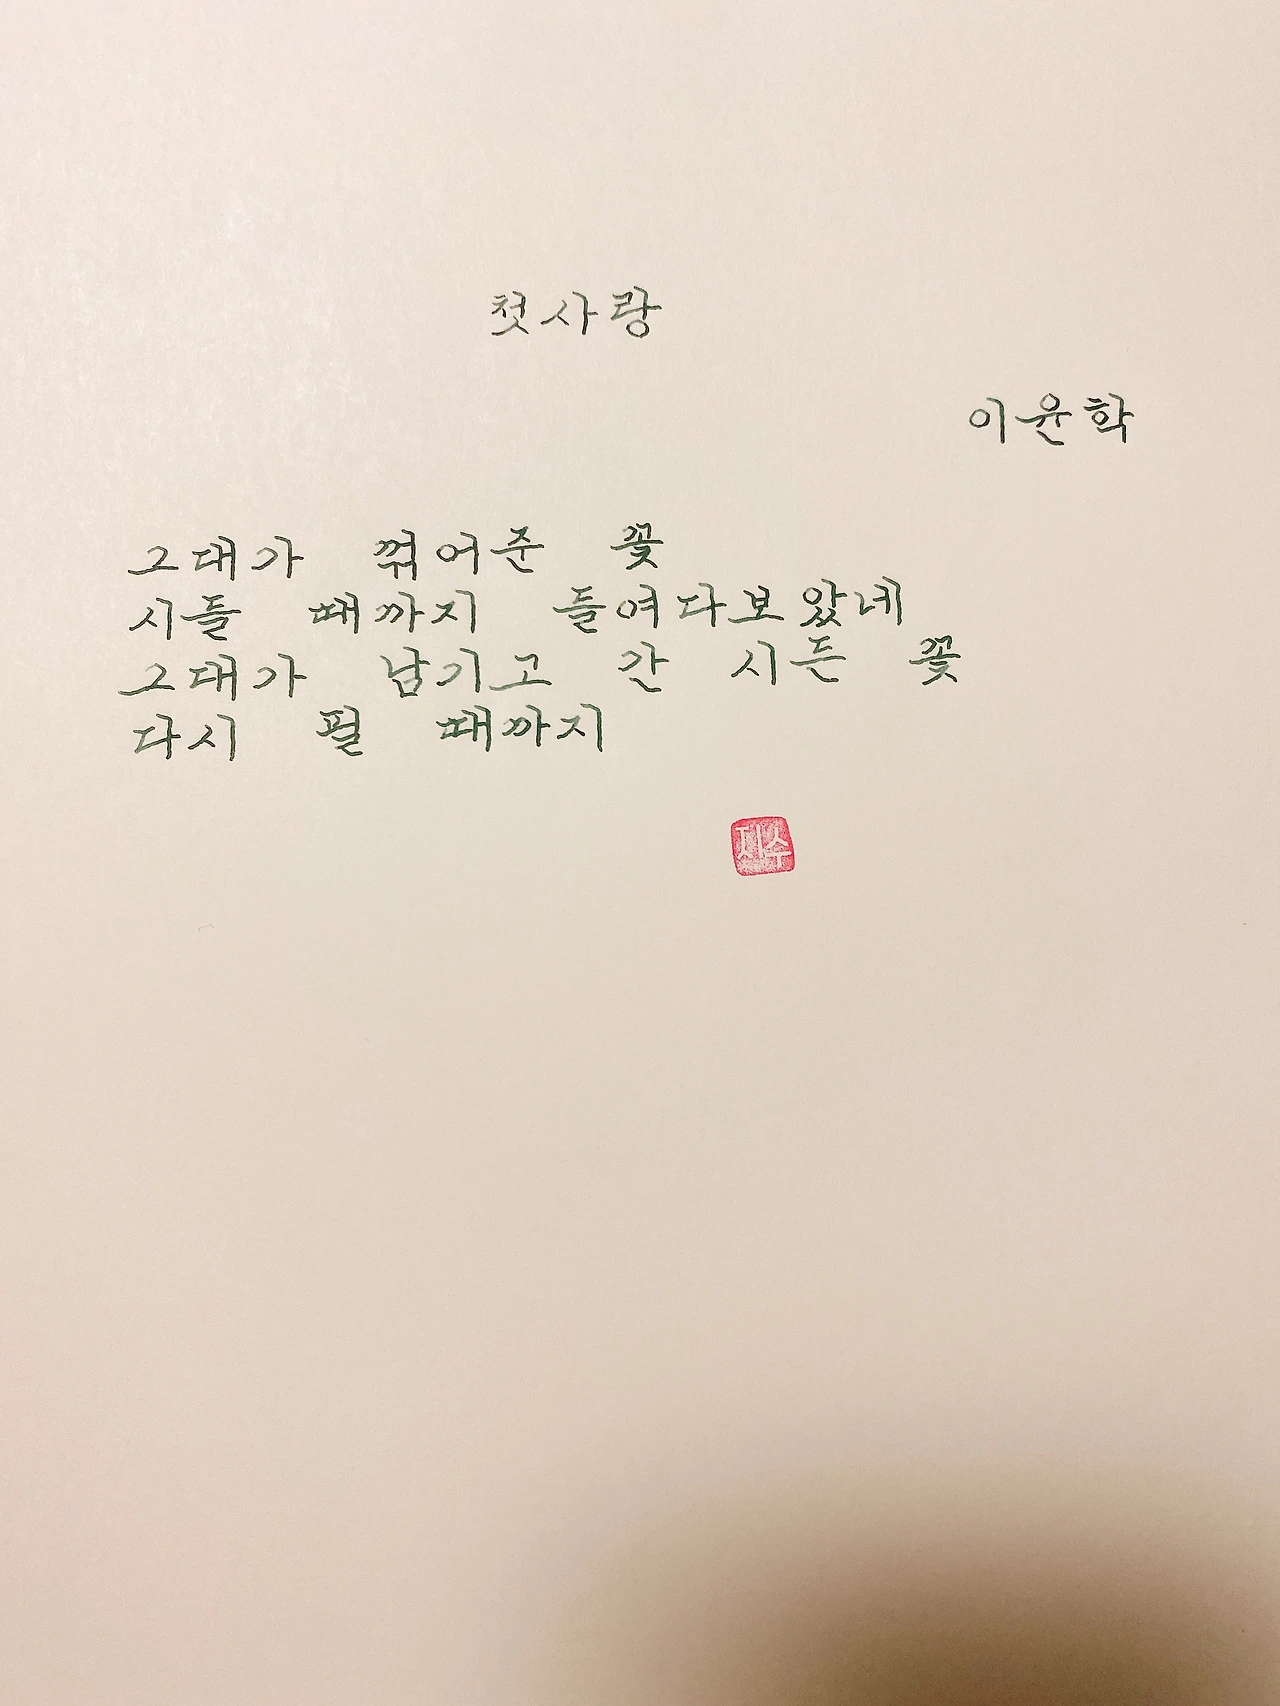 첫사랑
이윤학
그대가 꺾어준 꽃
시들 때까지 들여다보았네
그대가 남기고 간 시든 꽃
다시 필 때까지
지수